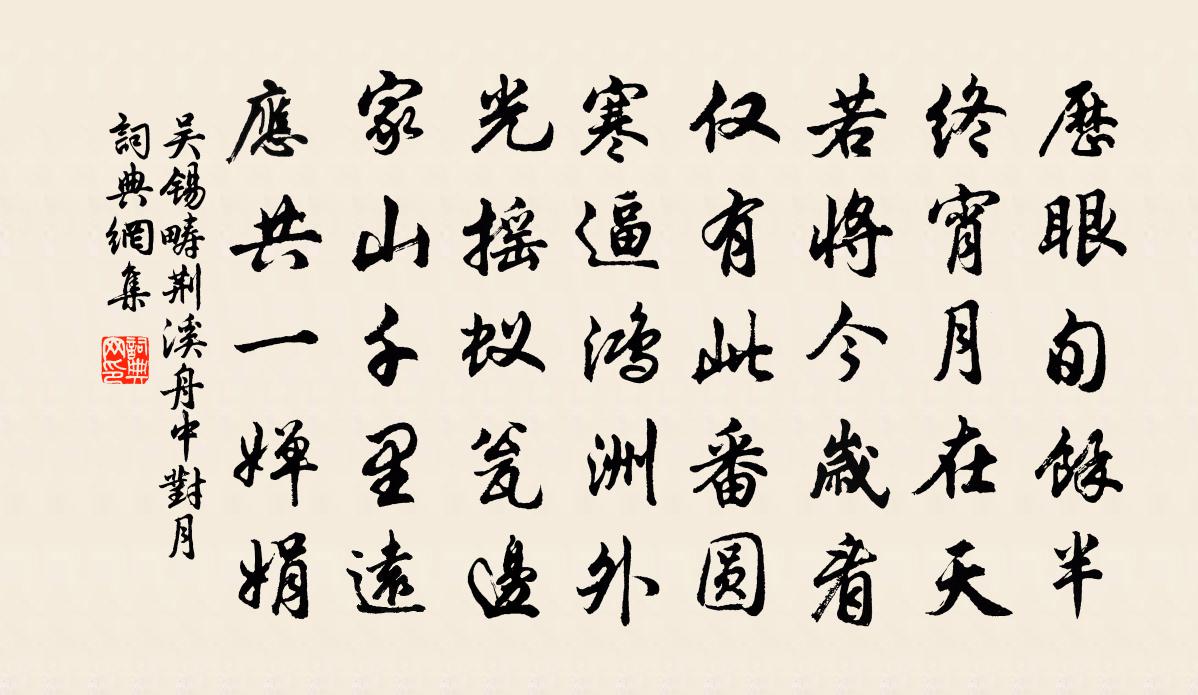 歷眼旬餘半
終宵月在天
若將今歲看
仅有此番圆
寒逼鴻洲外
光摇蚁瓮邊
家山千里遠
應共一婵娟
吴锡畴荆溪舟中對月
詞典網集
詞典网印